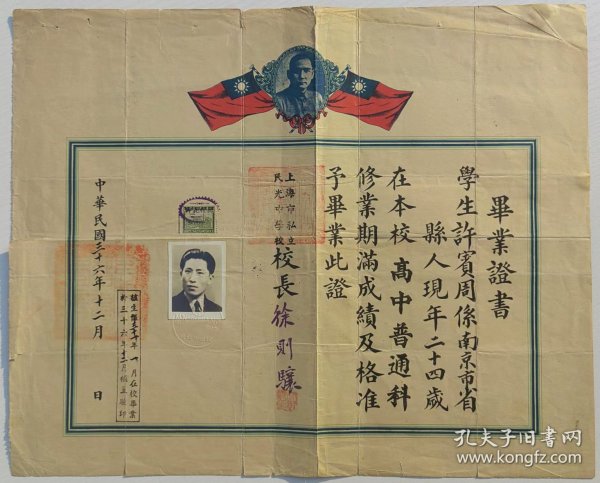 畢業證書
學生許賓周係南京市省
縣人現年二十四歲
在本校高中普通科
修業期滿成績及格准
予畢業此證
上海市私立
民光中學校
校長徐則驤
中華民國三十六年十二月 日
月在校畢業
於三十六年十二月補五驗印
孔夫子旧书网
www.kongfz.com